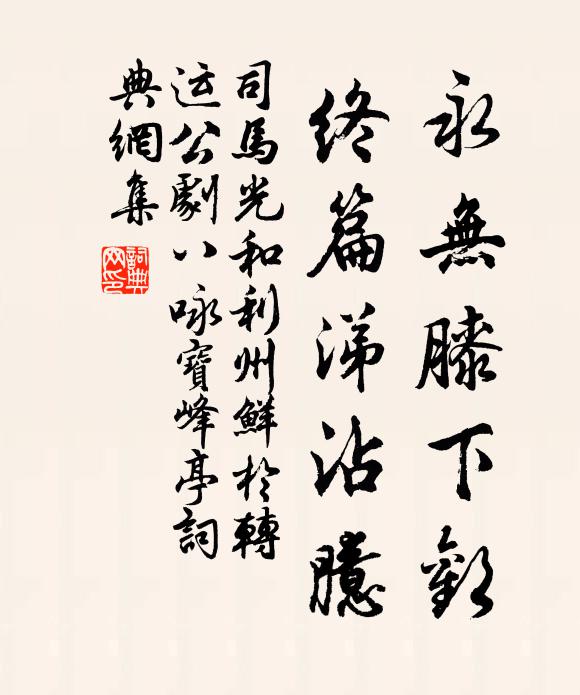 永無膝下歡
終篇涕沾臆
司馬光和利州鮮於轉
运公劇八咏寶峰亭詞
典網集
詞典網印